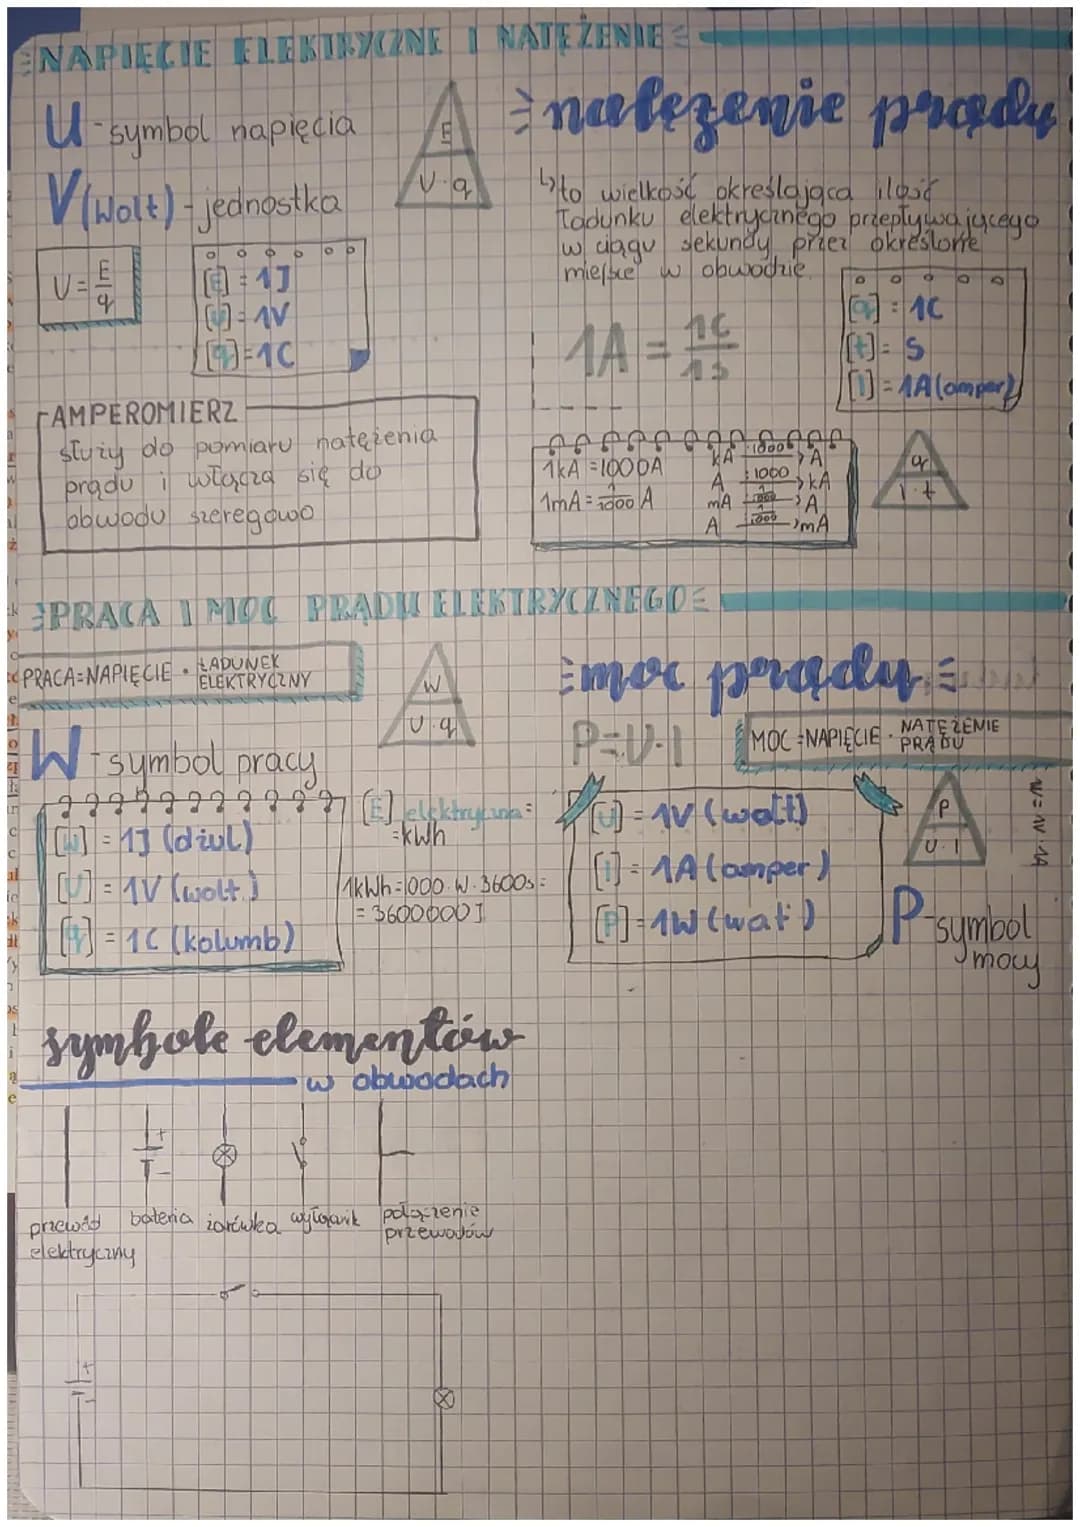 NAPIĘCIE ELEKTRYCZNE I NATĘŻENIE
U - symbol napięcia
V (Wolt) - jednostka
E
U · q
U = E/q
[E] = 1J
[U] = 1V
[q] = 1C
natężenie prądu
↳ to wielkość określająca ilość
ładunku elektrycznego przepływającego
w ciągu sekundy przez określone
miejsce w obwodzie.
1A = 1C/1s
[q] = 1C
[t] = s
[I] = 1A (amper)
AMPEROMIERZ
służy do pomiaru natężenia
prądu i włącza się do
obwodu szeregowo
1kA = 1000A
1mA = 1/1000 A
kA ·1000 → A
A :1000 → kA
mA 1/1000 → A
A 1/1000 → mA
q
I · t
PRACA I MOC PRĄDU ELEKTRYCZNEGO
PRACA = NAPIĘCIE · ŁADUNEK
ELEKTRYCZNY
W
U · q
W - symbol pracy
[W] = 1J (dżul)
[U] = 1V (wolt)
[q] = 1C (kolumb)
[E] elektryczna =
= kWh
1kWh = 1000 W · 3600s =
= 3600000J
moc prądu
P = U · I
MOC = NAPIĘCIE · NATĘŻENIE
PRĄDU
[U] = 1V (wolt)
[I] = 1A (amper)
[P] = 1W (wat)
P
U · I
W = 1V · 1q
P - symbol
mocy
symbole elementów
w obwodach
+
-
przewód
elektryczny
bateria
żarówka
wyłącznik
połączenie
przewodów
+
-